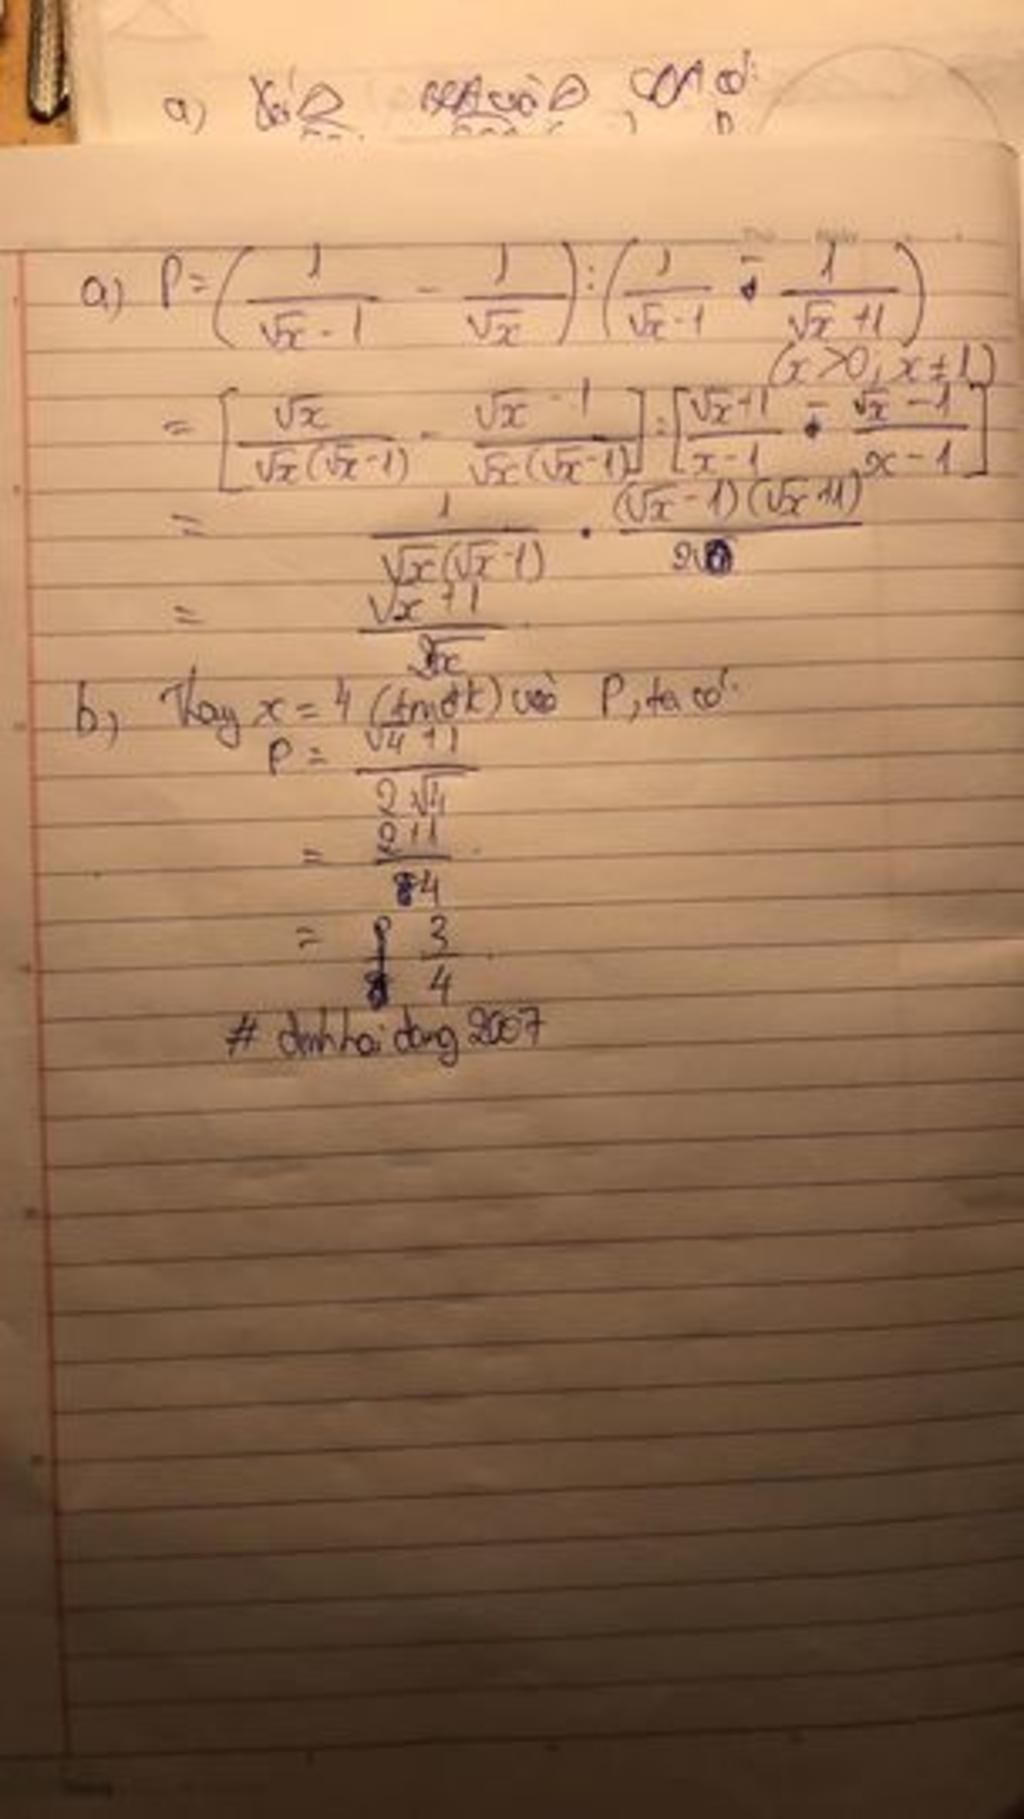 a)
a) P = (1/(√x - 1) - 1/√x) : (1/(√x - 1) - 1/(√x + 1))
(x > 0; x ≠ 1)
= [√x/(√x(√x - 1)) - (√x - 1)/(√x(√x - 1))] : [(√x + 1)/(x - 1) - (√x - 1)/(x - 1)]
= 1/(√x(√x - 1)) . (√x - 1)(√x + 1)/2
= (√x + 1)/(2√x)
b) Thay x = 4 (tmđk) vào P, ta có:
P = (√4 + 1)/(2√4)
= (2 + 1)/4
= 3/4
# dinhhaidang2007